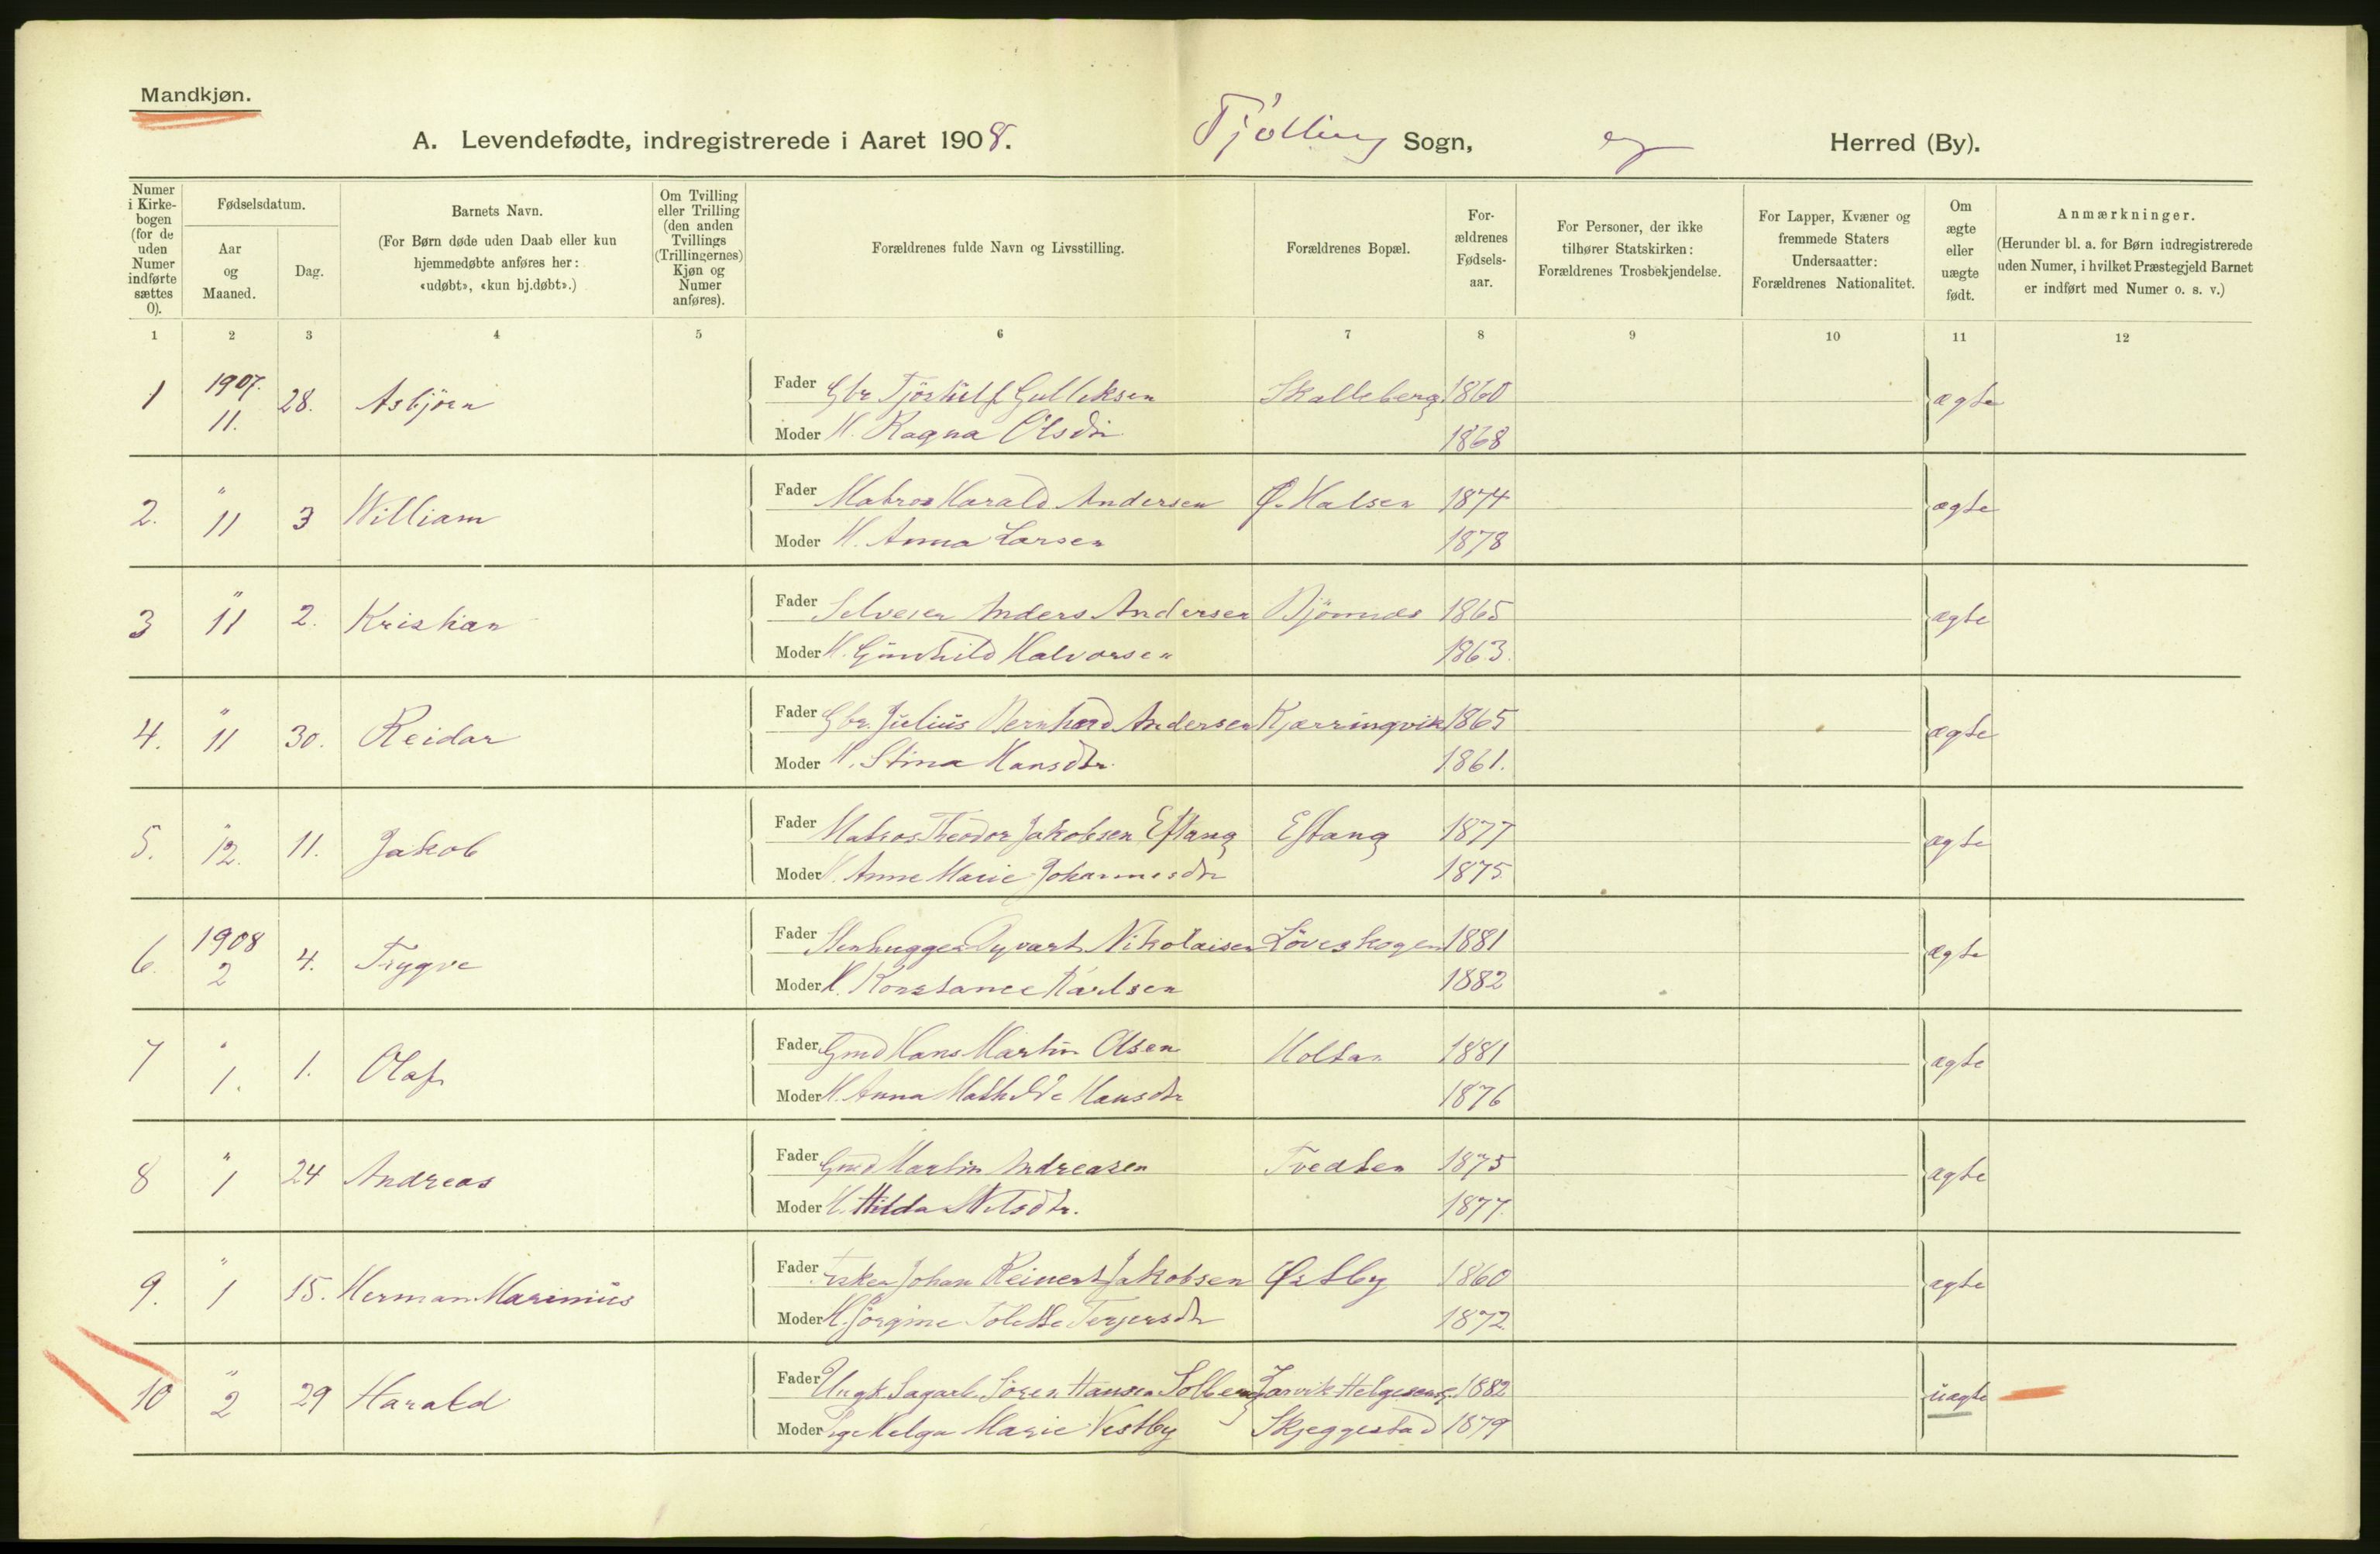 Mandkjøn.
A. Levendefødte, indregistrerede i Aaret 1908. Tjølling Sogn, og Herred (By).
Numer i Kirkebogen (for de uden Numer indførte sættes 0).
Fødselsdatum.
Aar og Maaned.
Dag.
Barnets Navn.
(For Børn døde uden Daab eller kun hjemmedøbte anføres her: «udøbt», «kun hj.døbt».)
Om Tvilling eller Trilling (den anden Tvillings (Trillingernes) Kjøn og Numer anføres).
Forældrenes fulde Navn og Livsstilling.
Forældrenes Bopæl.
Forældrenes Fødselsaar.
For Personer, der ikke tilhører Statskirken: Forældrenes Trosbekjendelse.
For Lapper, Kvæner og fremmede Staters Undersaatter: Forældrenes Nationalitet.
Om ægte eller uægte født.
Anmærkninger.
(Herunder bl. a. for Børn indregistrerede uden Numer, i hvilket Præstegjeld Barnet er indført med Numer o. s. v.)
1 2 3 4 5 6 7 8 9 10 11 12
1 1907. 11. 28. Asbjørn Fader Gbr Gulleksen Skalleberg 1860 ægte
Moder H. Ragna Olsdtr 1868
2. " 11 3 William Fader Matros Harald Andersen Ø. Halsen 1874 ægte
Moder H. Anna Larsen 1878
3 " 11 2. Kristian Fader Selveier Anders Andersen Bjönnes 1865 ægte
Moder H. Gunhild Halvorsen 1863.
4. " 11 30. Reidar Fader Gbr. Julius Bernhard Andersen Kjærringvik 1865 ægte
Moder H. Stina Hansdtr. 1861.
5. " 12. 11. Jakob Fader Matros Theodor Jakobsen Eftang Eftang 1877 ægte
Moder H. Anne Marie Johannesdtr 1875
6. 1908 2 4. Trygve Fader Stenhugger Nikolaisen Löveskogen 1881 ægte
Moder H. Konstance Karlsen 1882
7 " 1. 1. Olaf Fader Gmd Hans Martin Olsen Holtan 1881 ægte
Moder H. Anna Mathilde Hansdtr 1876
8 " 1 24 Andreas Fader Gmd Martin Andreasen Tvedten 1875 ægte
Moder H. Hilda Nilsdtr. 1877.
9. " 1 15. Herman Marinius Fader Fisker Johan Reinert Jakobsen Østby 1860 ægte
Moder H. Jörgine Tolette Terjersdtr 1872
10 " 2 29 Harald Fader Ungk. Sagarb. Sören Hansen Solberg Larvik 1882 uægte
Moder Pge Helga Marie Vestby Skjeggestad 1879